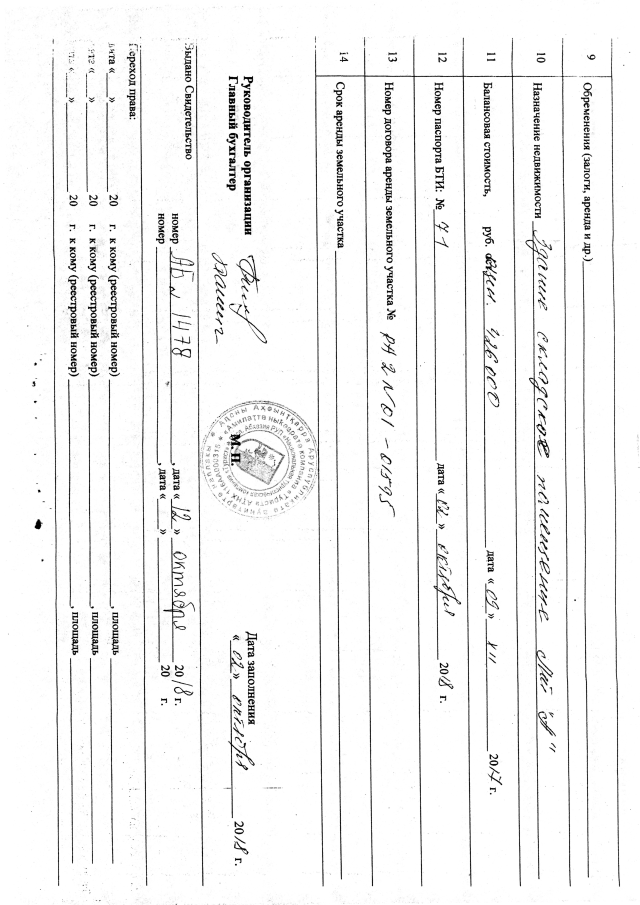 9 Обременения (залоги, аренда и др.)
10 Назначение недвижимости Здание складское помещение Лит "А"
11 Балансовая стоимость, руб. 426000 дата « 09 » XII 2017 г.
12 Номер паспорта БТИ: № 71 дата « 02 » октября 2018 г.
13 Номер договора аренды земельного участка № РА 2 N 01-01595
14 Срок аренды земельного участка
Руководитель организации
Главный бухгалтер
М.П.
Дата заполнения
« 02 » октября 2018 г.
Выдано Свидетельство номер АБ N 1478, дата « 12 » октября 2018 г.
номер , дата « » 20 г.
Переход права:
дата « » 20 г. к кому (реестровый номер) , площадь
дата « » 20 г. к кому (реестровый номер) , площадь
дата « » 20 г. к кому (реестровый номер) , площадь